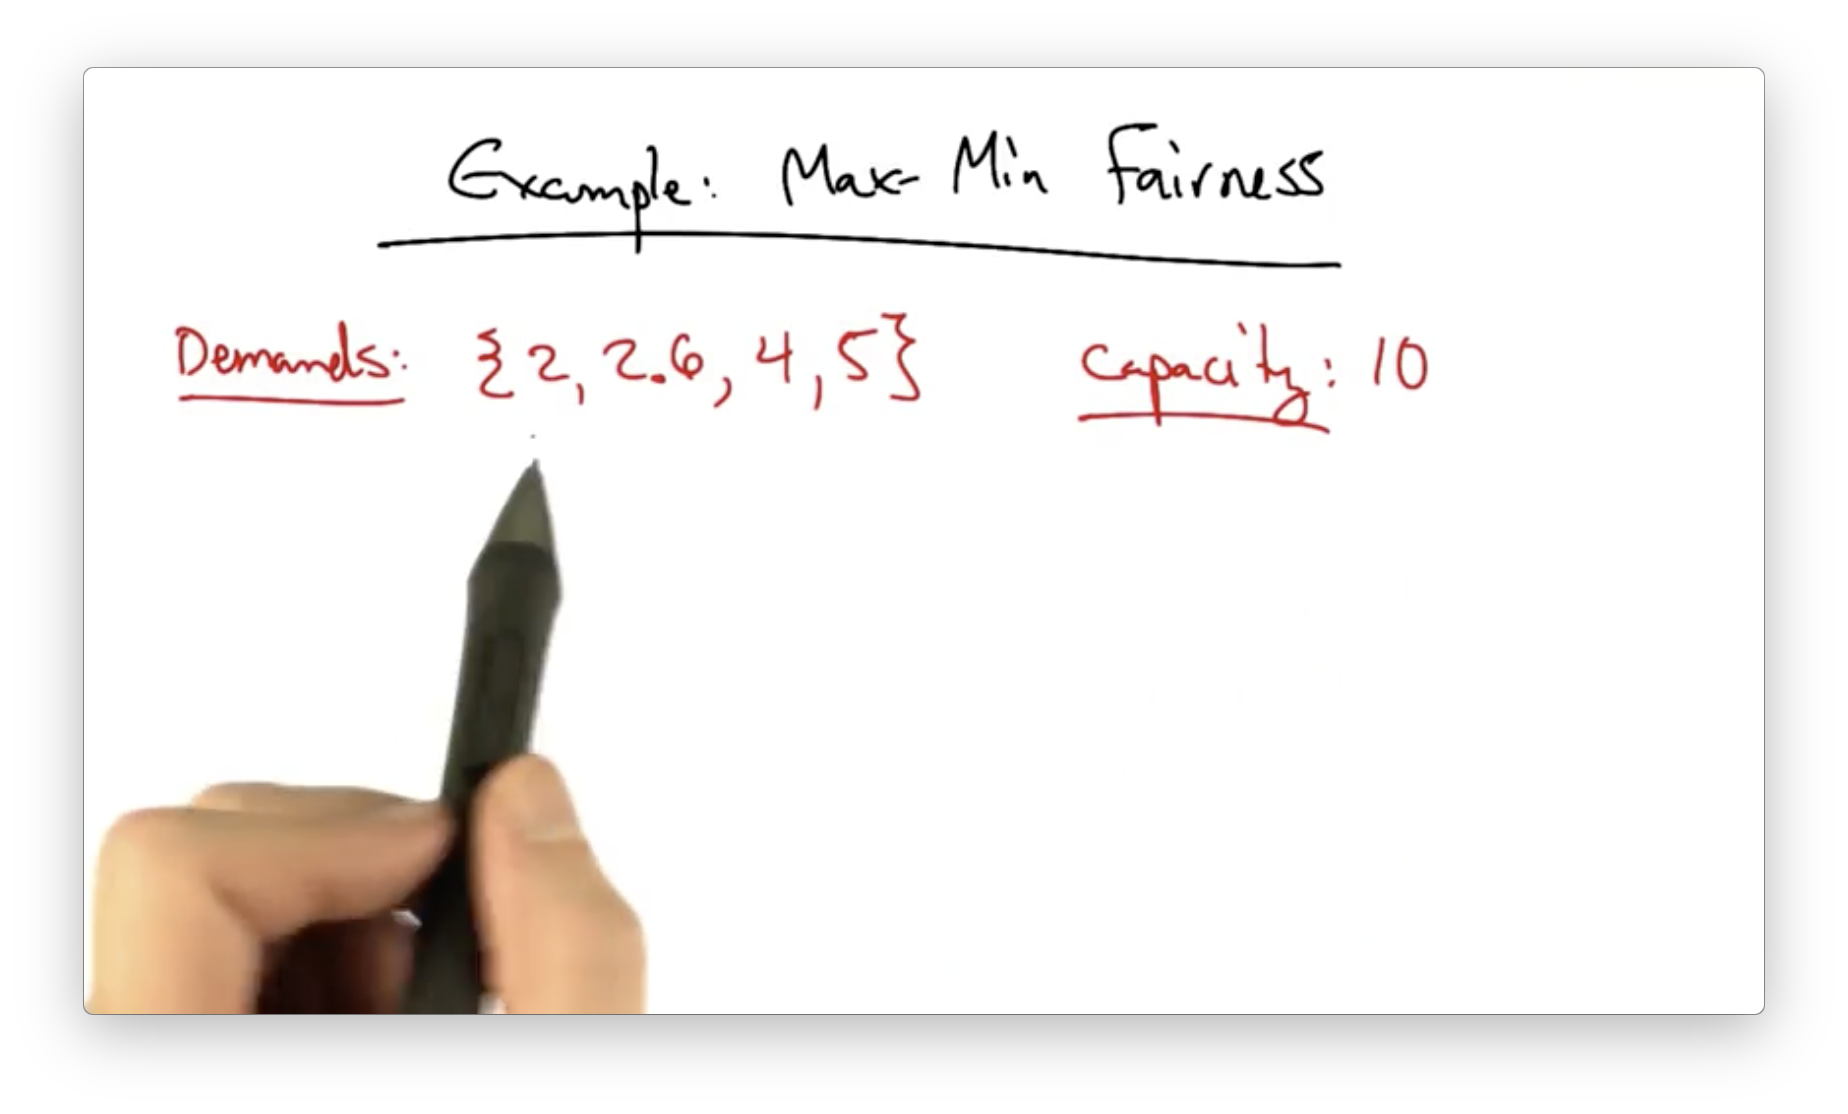 Example: Max-Min Fairness
Demands: {2, 2.6, 4, 5} Capacity: 10